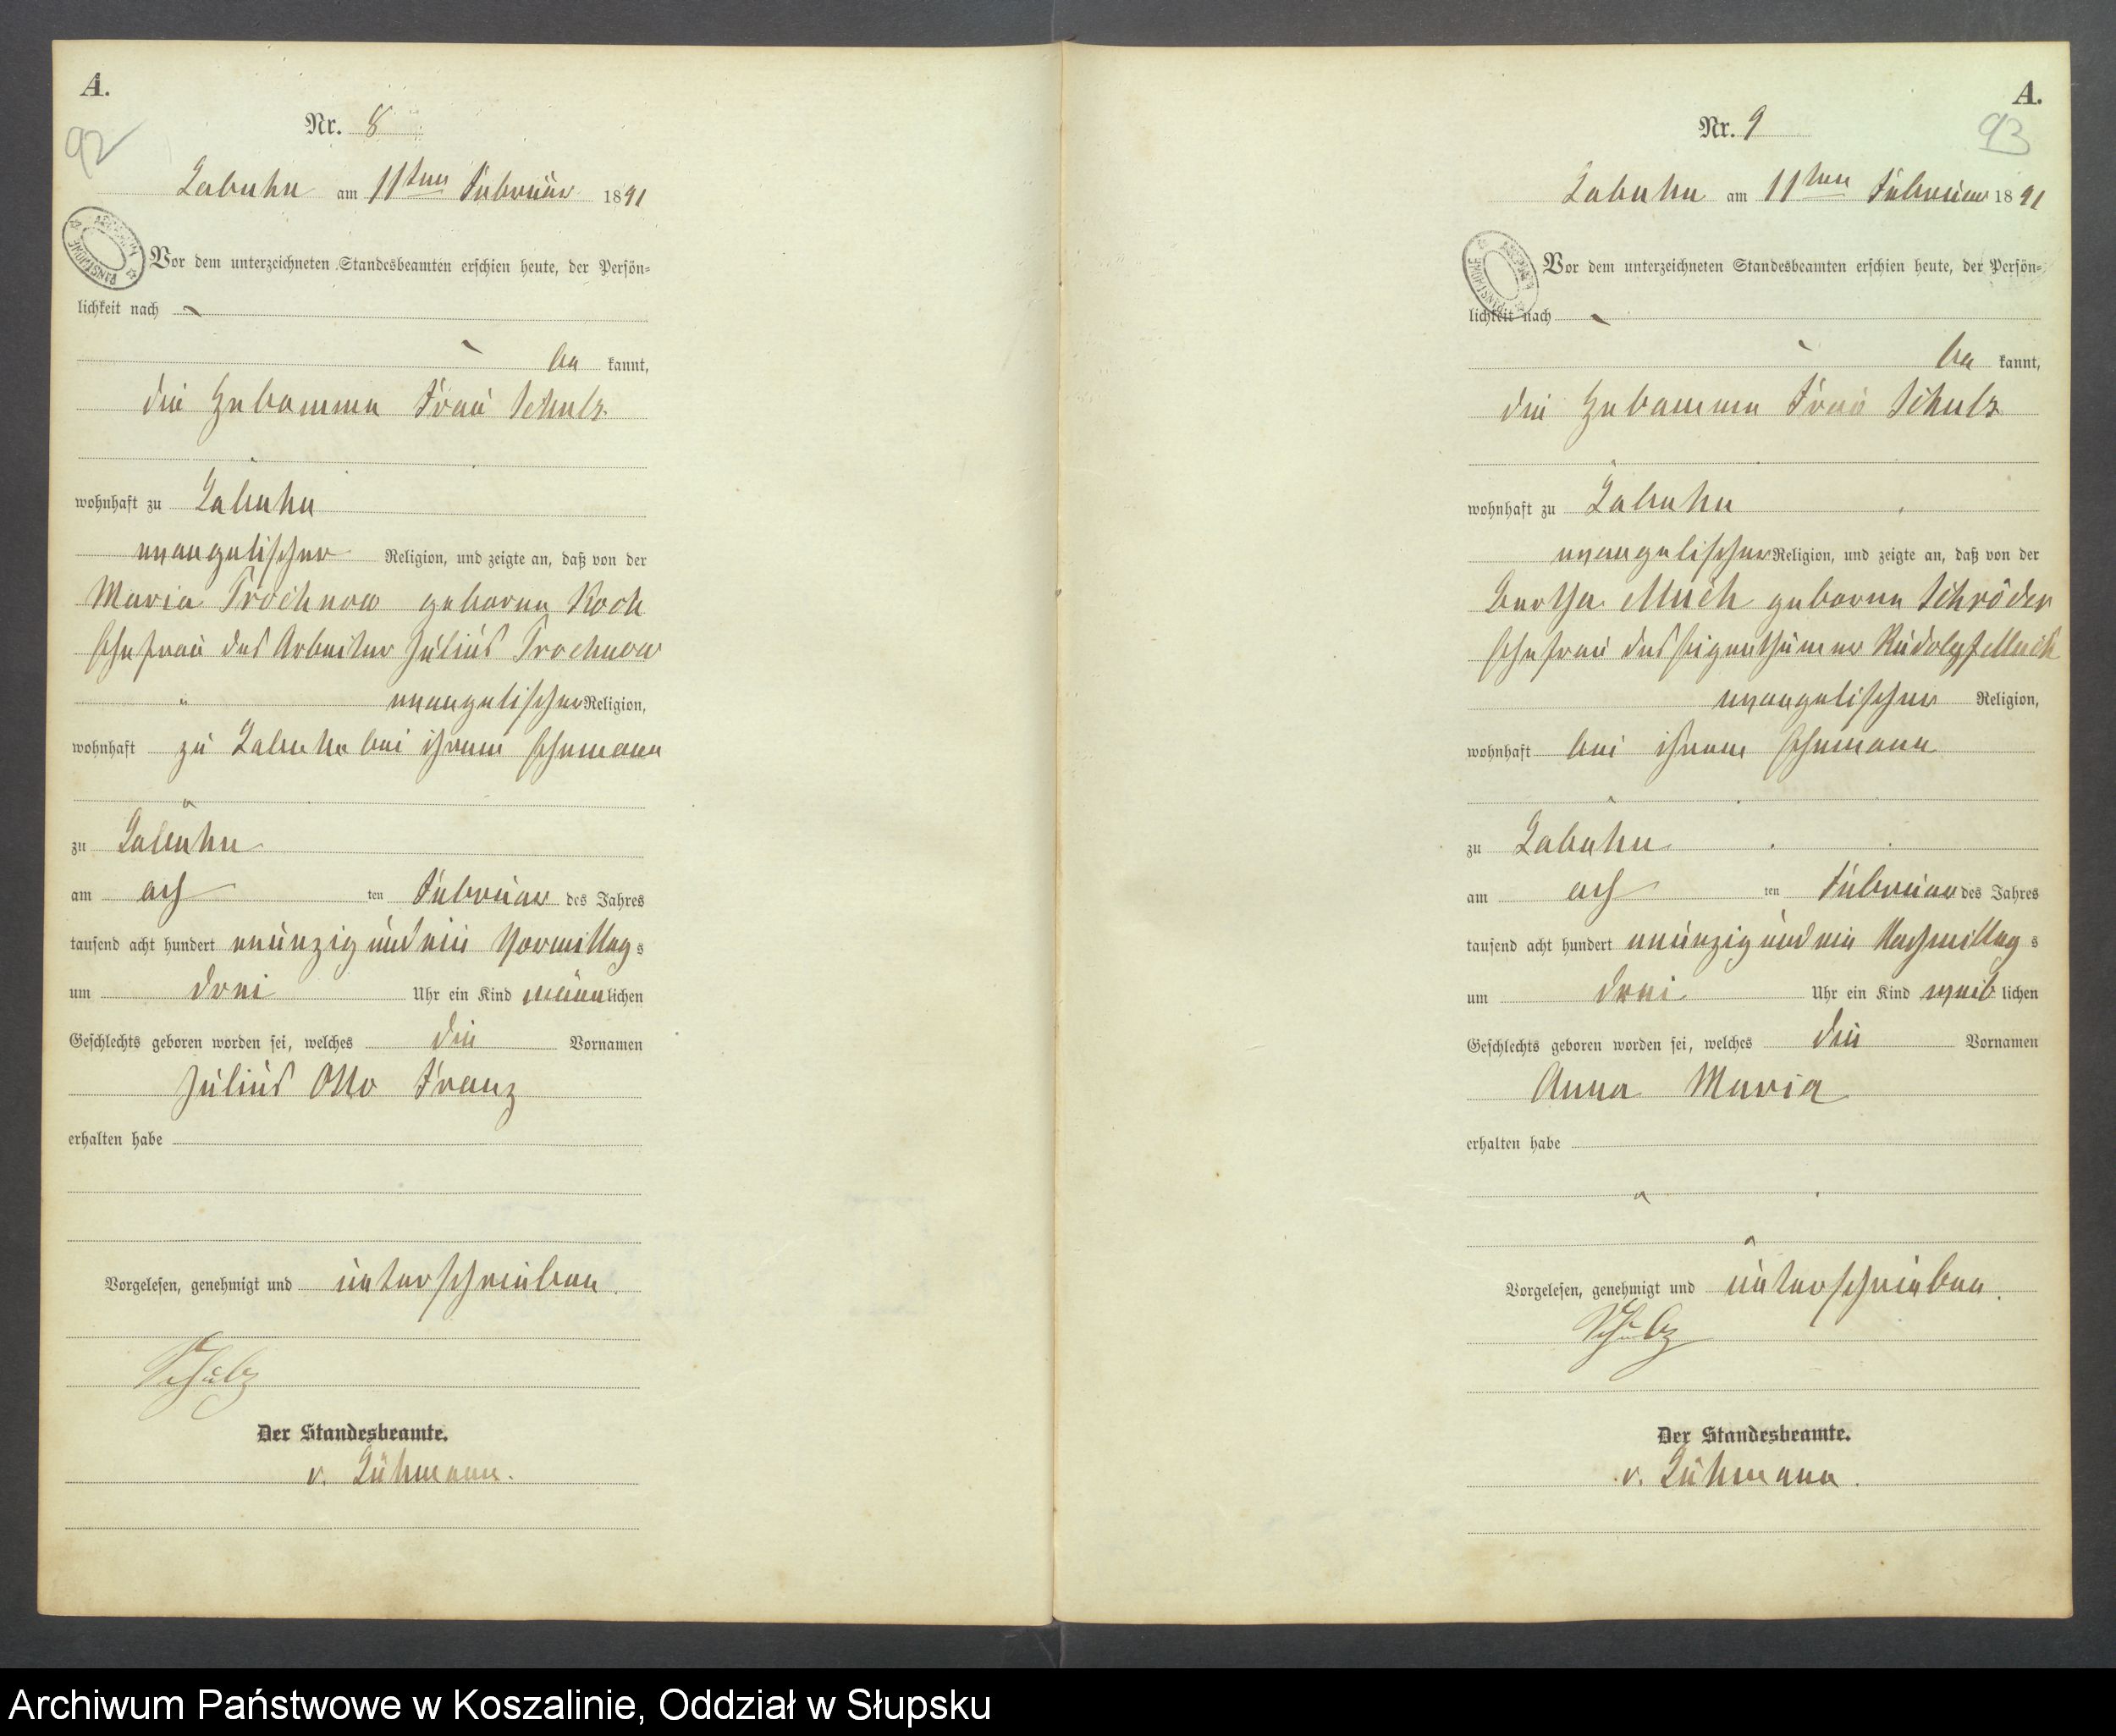 A.
92
Nr. 8
Labuhn am 11ten Februar 1891
Vor dem unterzeichneten Standesbeamten erschien heute, der Persön-
lichkeit nach
be kannt,
die Hebamme Frau Schulz
wohnhaft zu Labuhn
evangelischer Religion, und zeigte an, daß von der
Maria Trochnow geborene Koch
Ehefrau des Arbeiter Julius Trochnow
evangelischer Religion,
wohnhaft zu Labuhn bei ihrem Ehemann
zu Labuhn
am ach ten Februar des Jahres
tausend acht hundert neunzig und ein Vormittag s
um drei Uhr ein Kind männ lichen
Geschlechts geboren worden sei, welches die Vornamen
Julius Otto Franz
erhalten habe
Vorgelesen, genehmigt und unterschrieben.
Schulz
Der Standesbeamte.
v. Lühmann.
A.
93
Nr. 9
Labuhn am 11ten Februar 1891
Vor dem unterzeichneten Standesbeamten erschien heute, der Persön-
lichkeit nach
be kannt,
die Hebamme Frau Schulz
wohnhaft zu Labuhn
evangelischer Religion, und zeigte an, daß von der
Bertha Much geborne Schröder
Ehefrau des Eigenthümer Rudolpf Much
evangelischer Religion,
wohnhaft bei ihrem Ehemann
zu Labuhn
am ach ten Februar des Jahres
tausend acht hundert neunzig und ein Nachmittag s
um drei Uhr ein Kind weib lichen
Geschlechts geboren worden sei, welches die Vornamen
Anna Maria
erhalten habe
Vorgelesen, genehmigt und unterschrieben.
Schulz
Der Standesbeamte.
v. Lühmann.
Archiwum Państwowe w Koszalinie, Oddział w Słupsku